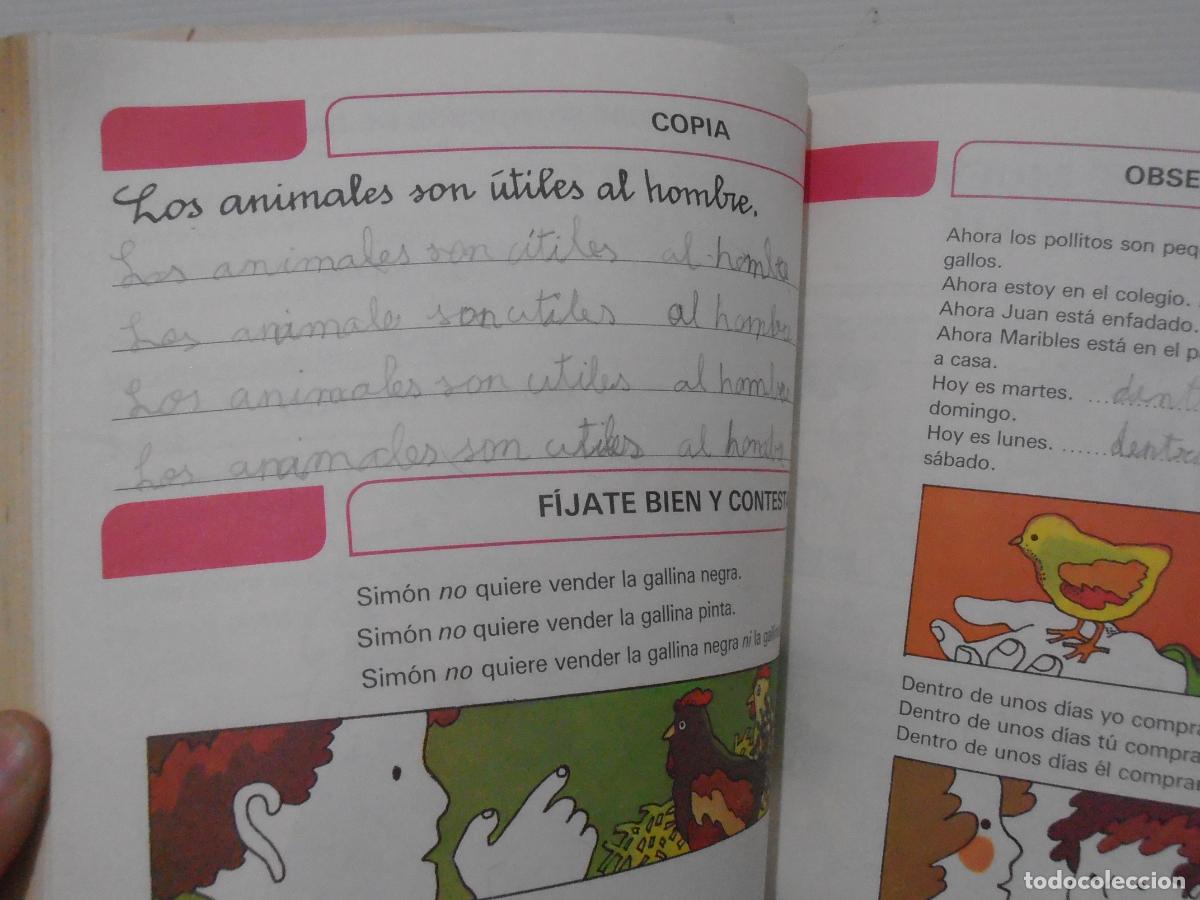 COPIA
Los animales son útiles al hombre.
Los animales son útiles al hombre
Los animale son utiles al hombre
Los animales son utiles al hombre
Los animales son utiles al hombre
FÍJATE BIEN Y CONTESTA
Simón no quiere vender la gallina negra.
Simón no quiere vender la gallina pinta.
Simón no quiere vender la gallina negra ni la
OBSE
Ahora los pollitos son peq
gallos.
Ahora estoy en el colegio.
Ahora Juan está enfadado.
Ahora Maribles está en el p
a casa.
Hoy es martes. ... dent
domingo.
Hoy es lunes. ...... dentro
sábado.
Dentro de unos días yo compra
Dentro de unos días tú compra
Dentro de unos días él comprar
todocoleccion